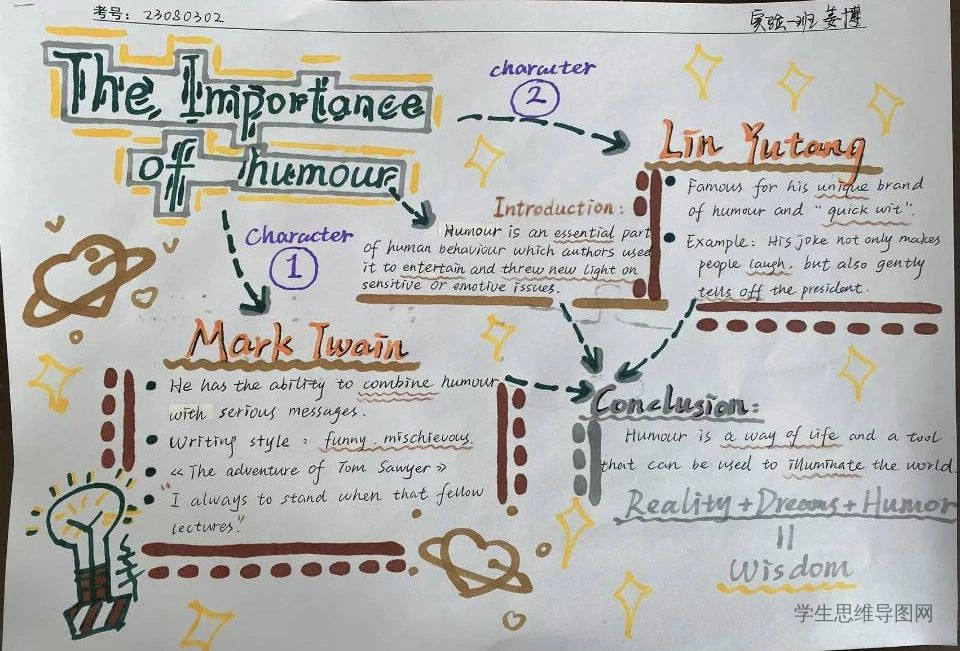 考号: 23080302
实验一班 姜博
The Importance
of humour
character
2
Lin Yutang
Famous for his unique brand
of humour and "quick wit".
Example: His joke not only makes
people laugh, but also gently
tells off the president.
Introduction:
Humour is an essential part
of human behaviour which authors used
it to entertain and threw new light on
sensitive or emotive issues.
Character
1
Mark Twain
He has the ability to combine humour
with serious messages.
Writing style: funny. mischievous.
《The adventure of Tom Sawyer》
"I always to stand when that fellow
lectures."
Conclusion:
Humour is a way of life and a tool
that can be used to illuminate the world.
Reality+Dreams+Humor
=
Wisdom
学生思维导图网